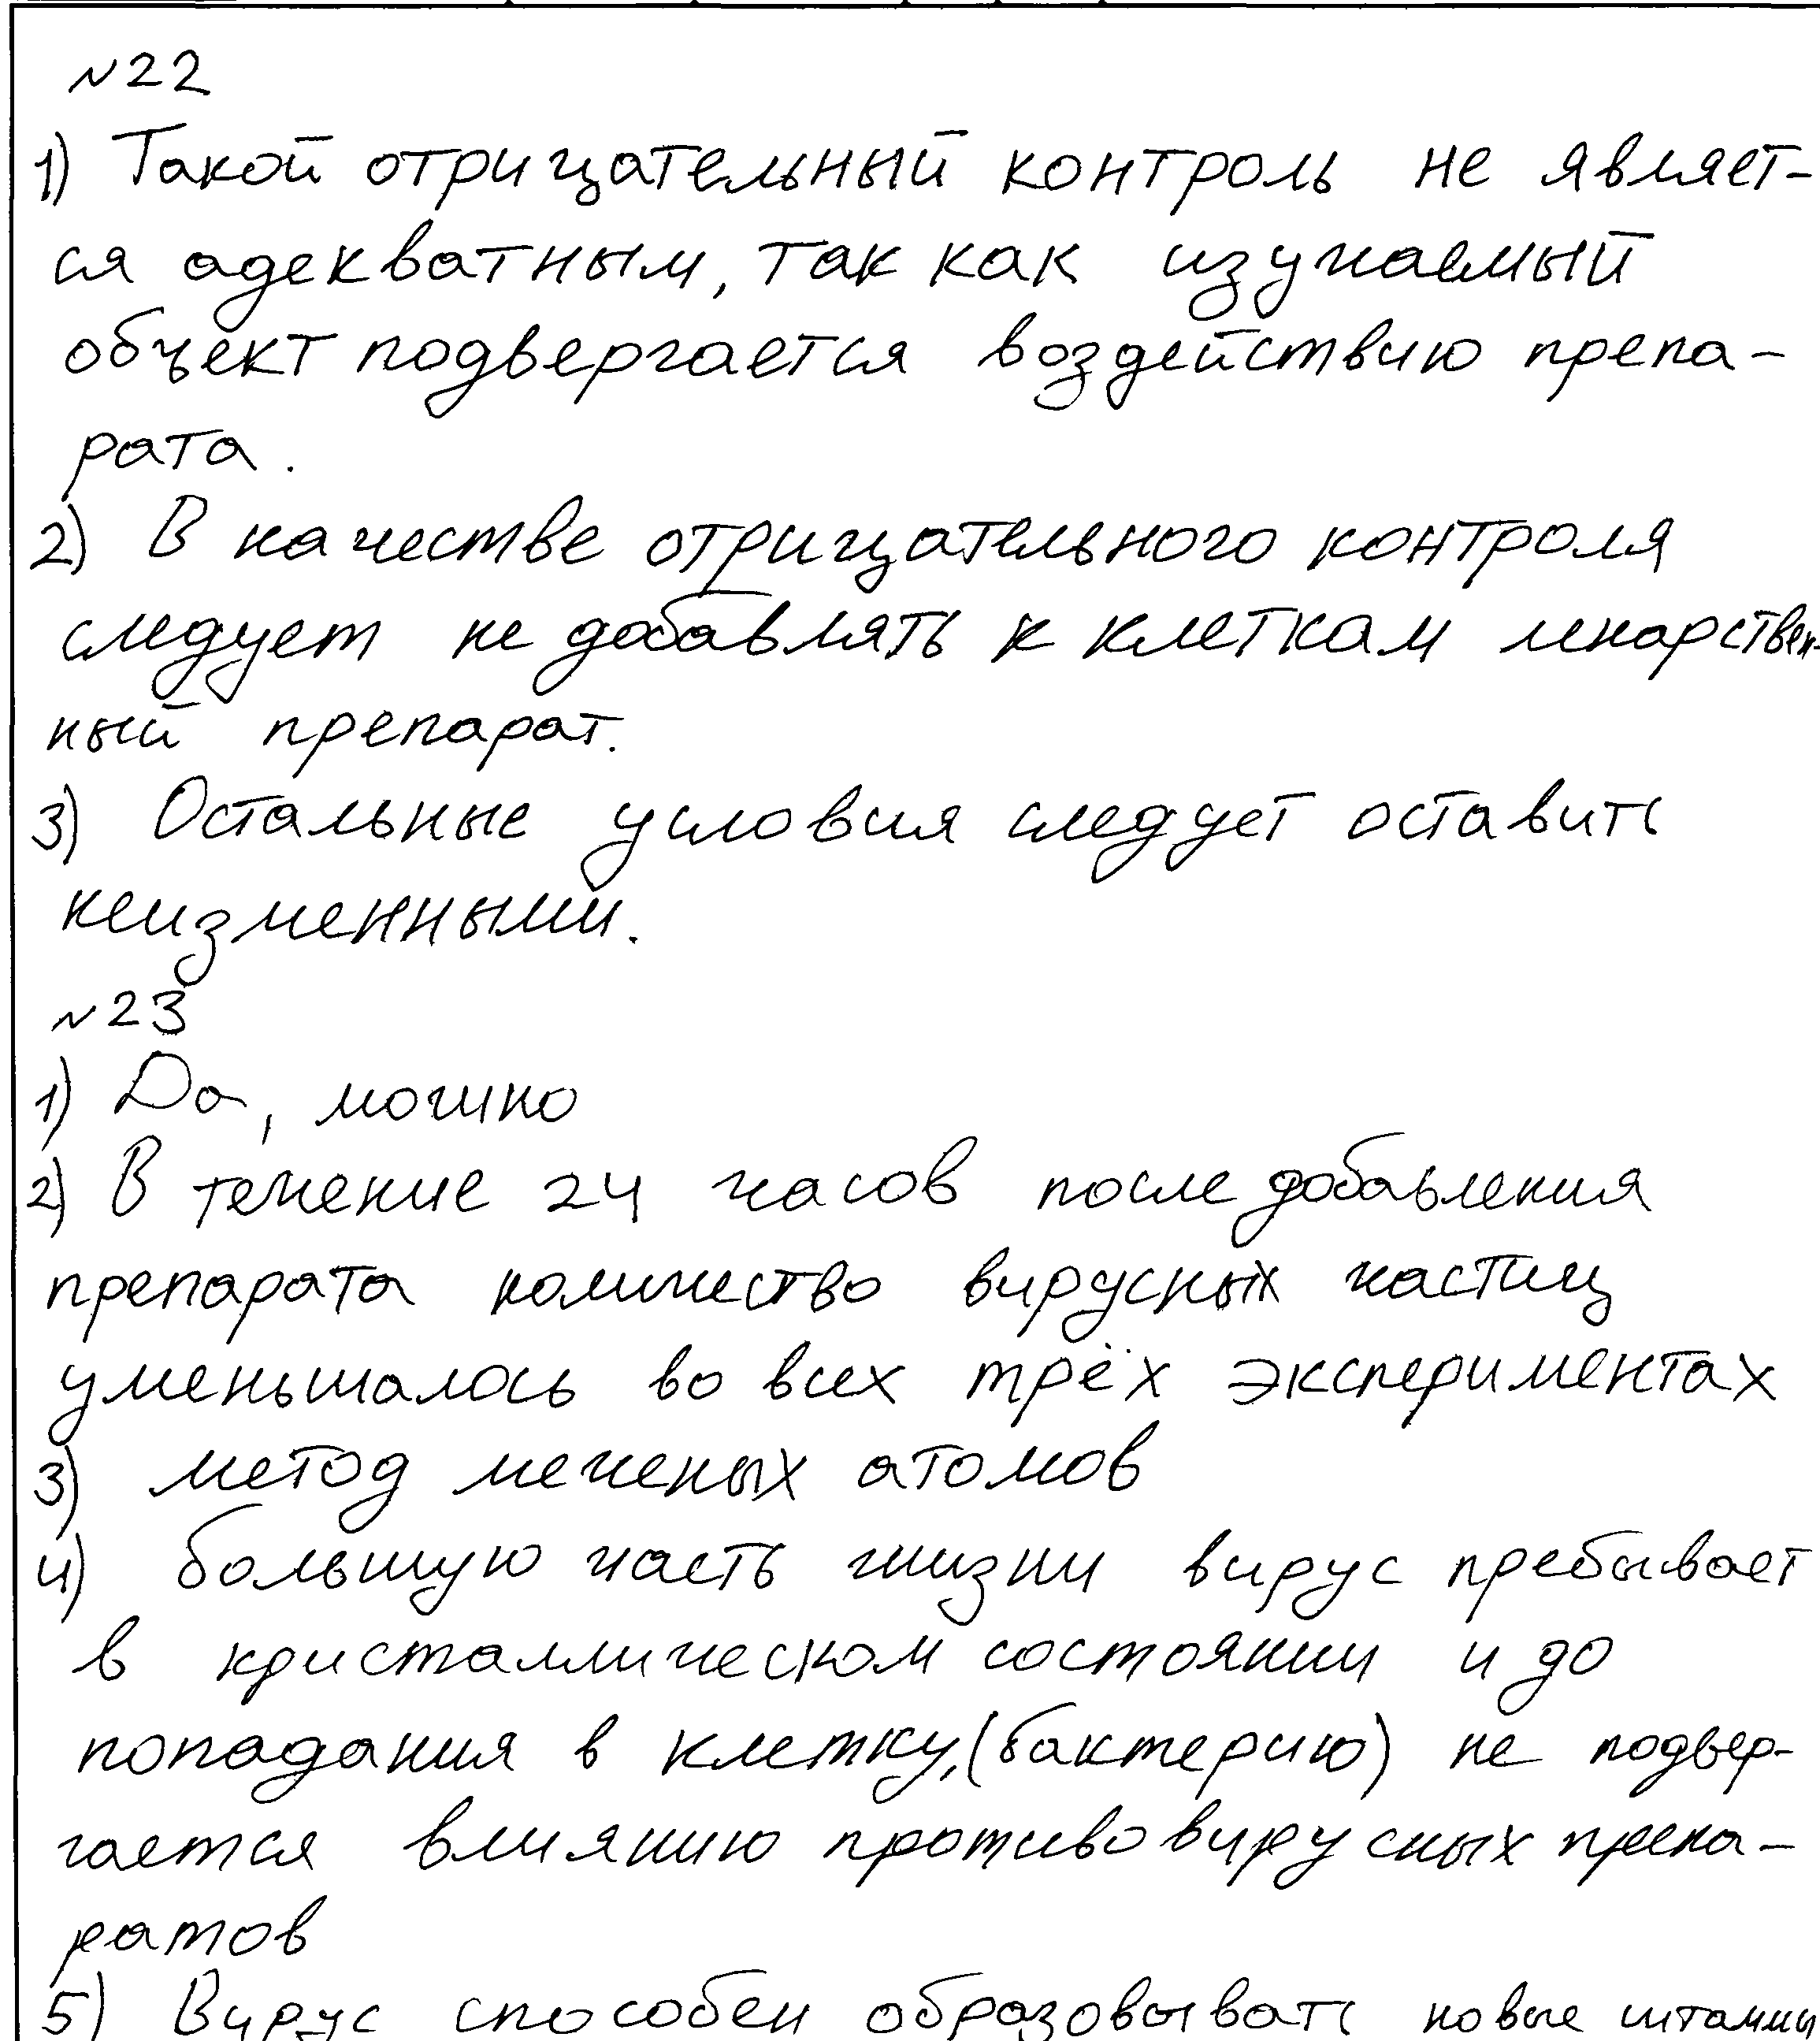 №22
1) Такой отрицательный контроль не являет-
ся адекватным, так как изучаемый
объект подвергается воздействию препа-
рата.
2) В качестве отрицательного контроля
следует не добавлять к клеткам лекарствен-
ный препарат.
3) Остальные условия следует оставить
неизменными.
№23
1) Да, можно
2) В течение 24 часов после добавления
препарата количество вирусных частиц
уменьшалось во всех трёх экспериментах
3) метод меченых атомов
4) большую часть жизни вирус пребывает
в кристаллическом состоянии и до
попадания в клетку,(бактерию) не подвер-
гается влиянию противовирусных препа-
ратов
5) Вирус способен образовывать новые штаммы